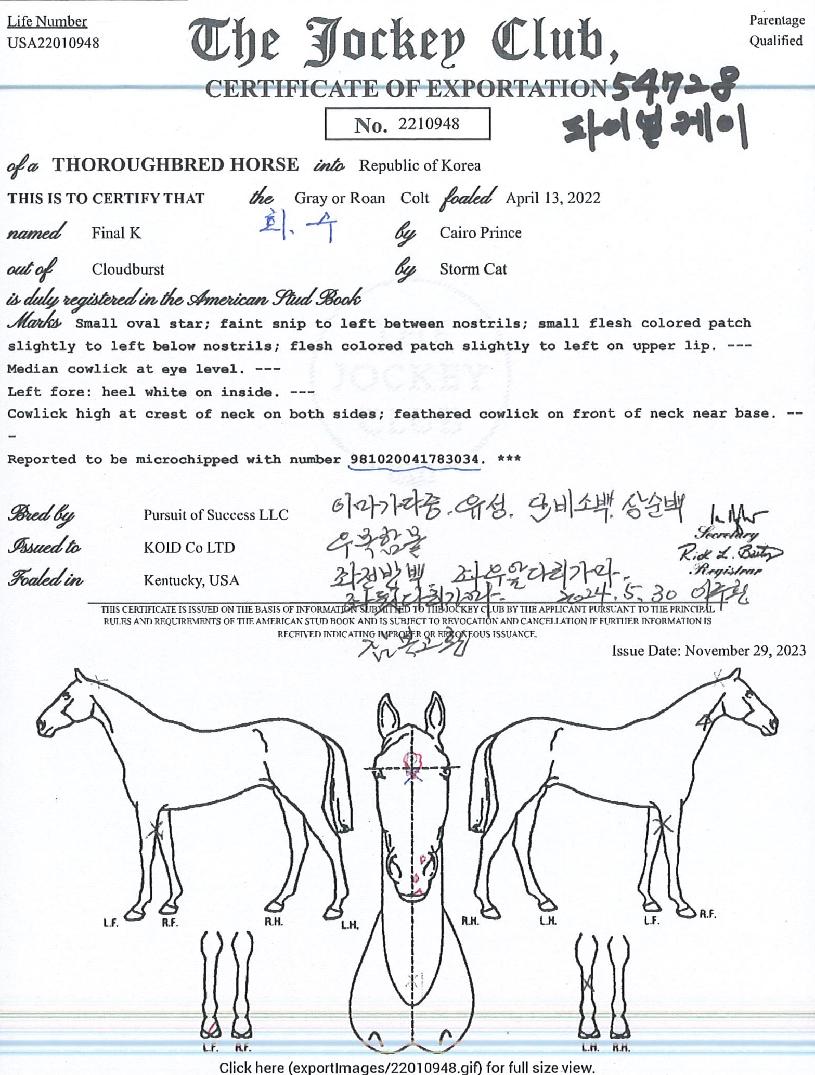 Life Number
USA22010948
The Jockey Club,
Parentage
Qualified
CERTIFICATE OF EXPORTATION
54728
파이널케이
No. 2210948
of a THOROUGHBRED HORSE into Republic of Korea
THIS IS TO CERTIFY THAT the Gray or Roan Colt foaled April 13, 2022
회. 수
named Final K by Cairo Prince
out of Cloudburst by Storm Cat
is duly registered in the American Stud Book
Marks Small oval star; faint snip to left between nostrils; small flesh colored patch
slightly to left below nostrils; flesh colored patch slightly to left on upper lip. ---
Median cowlick at eye level. ---
Left fore: heel white on inside. ---
Cowlick high at crest of neck on both sides; feathered cowlick on front of neck near base. --
-
Reported to be microchipped with number 981020041783034. ***
JOCKEY
CLUB
Bred by Pursuit of Success LLC
이마가마중. 유성. 단비소백, 상순백
Secretary
Issued to KOID Co LTD
Rick L. Bailey
Registrar
Foaled in Kentucky, USA
2024. 5. 30
THIS CERTIFICATE IS ISSUED ON THE BASIS OF INFORMATION SUBMITTED TO THE JOCKEY CLUB BY THE APPLICANT PURSUANT TO THE PRINCIPAL
RULES AND REQUIREMENTS OF THE AMERICAN STUD BOOK AND IS SUBJECT TO REVOCATION AND CANCELLATION IF FURTHER INFORMATION IS
RECEIVED INDICATING IMPROPER OR ERRONEOUS ISSUANCE.
Issue Date: November 29, 2023
L.F. R.F. R.H. L.H. R.H. L.H. L.F. R.F.
L.F. R.F. L.H. R.H.
Click here (exportImages/22010948.gif) for full size view.